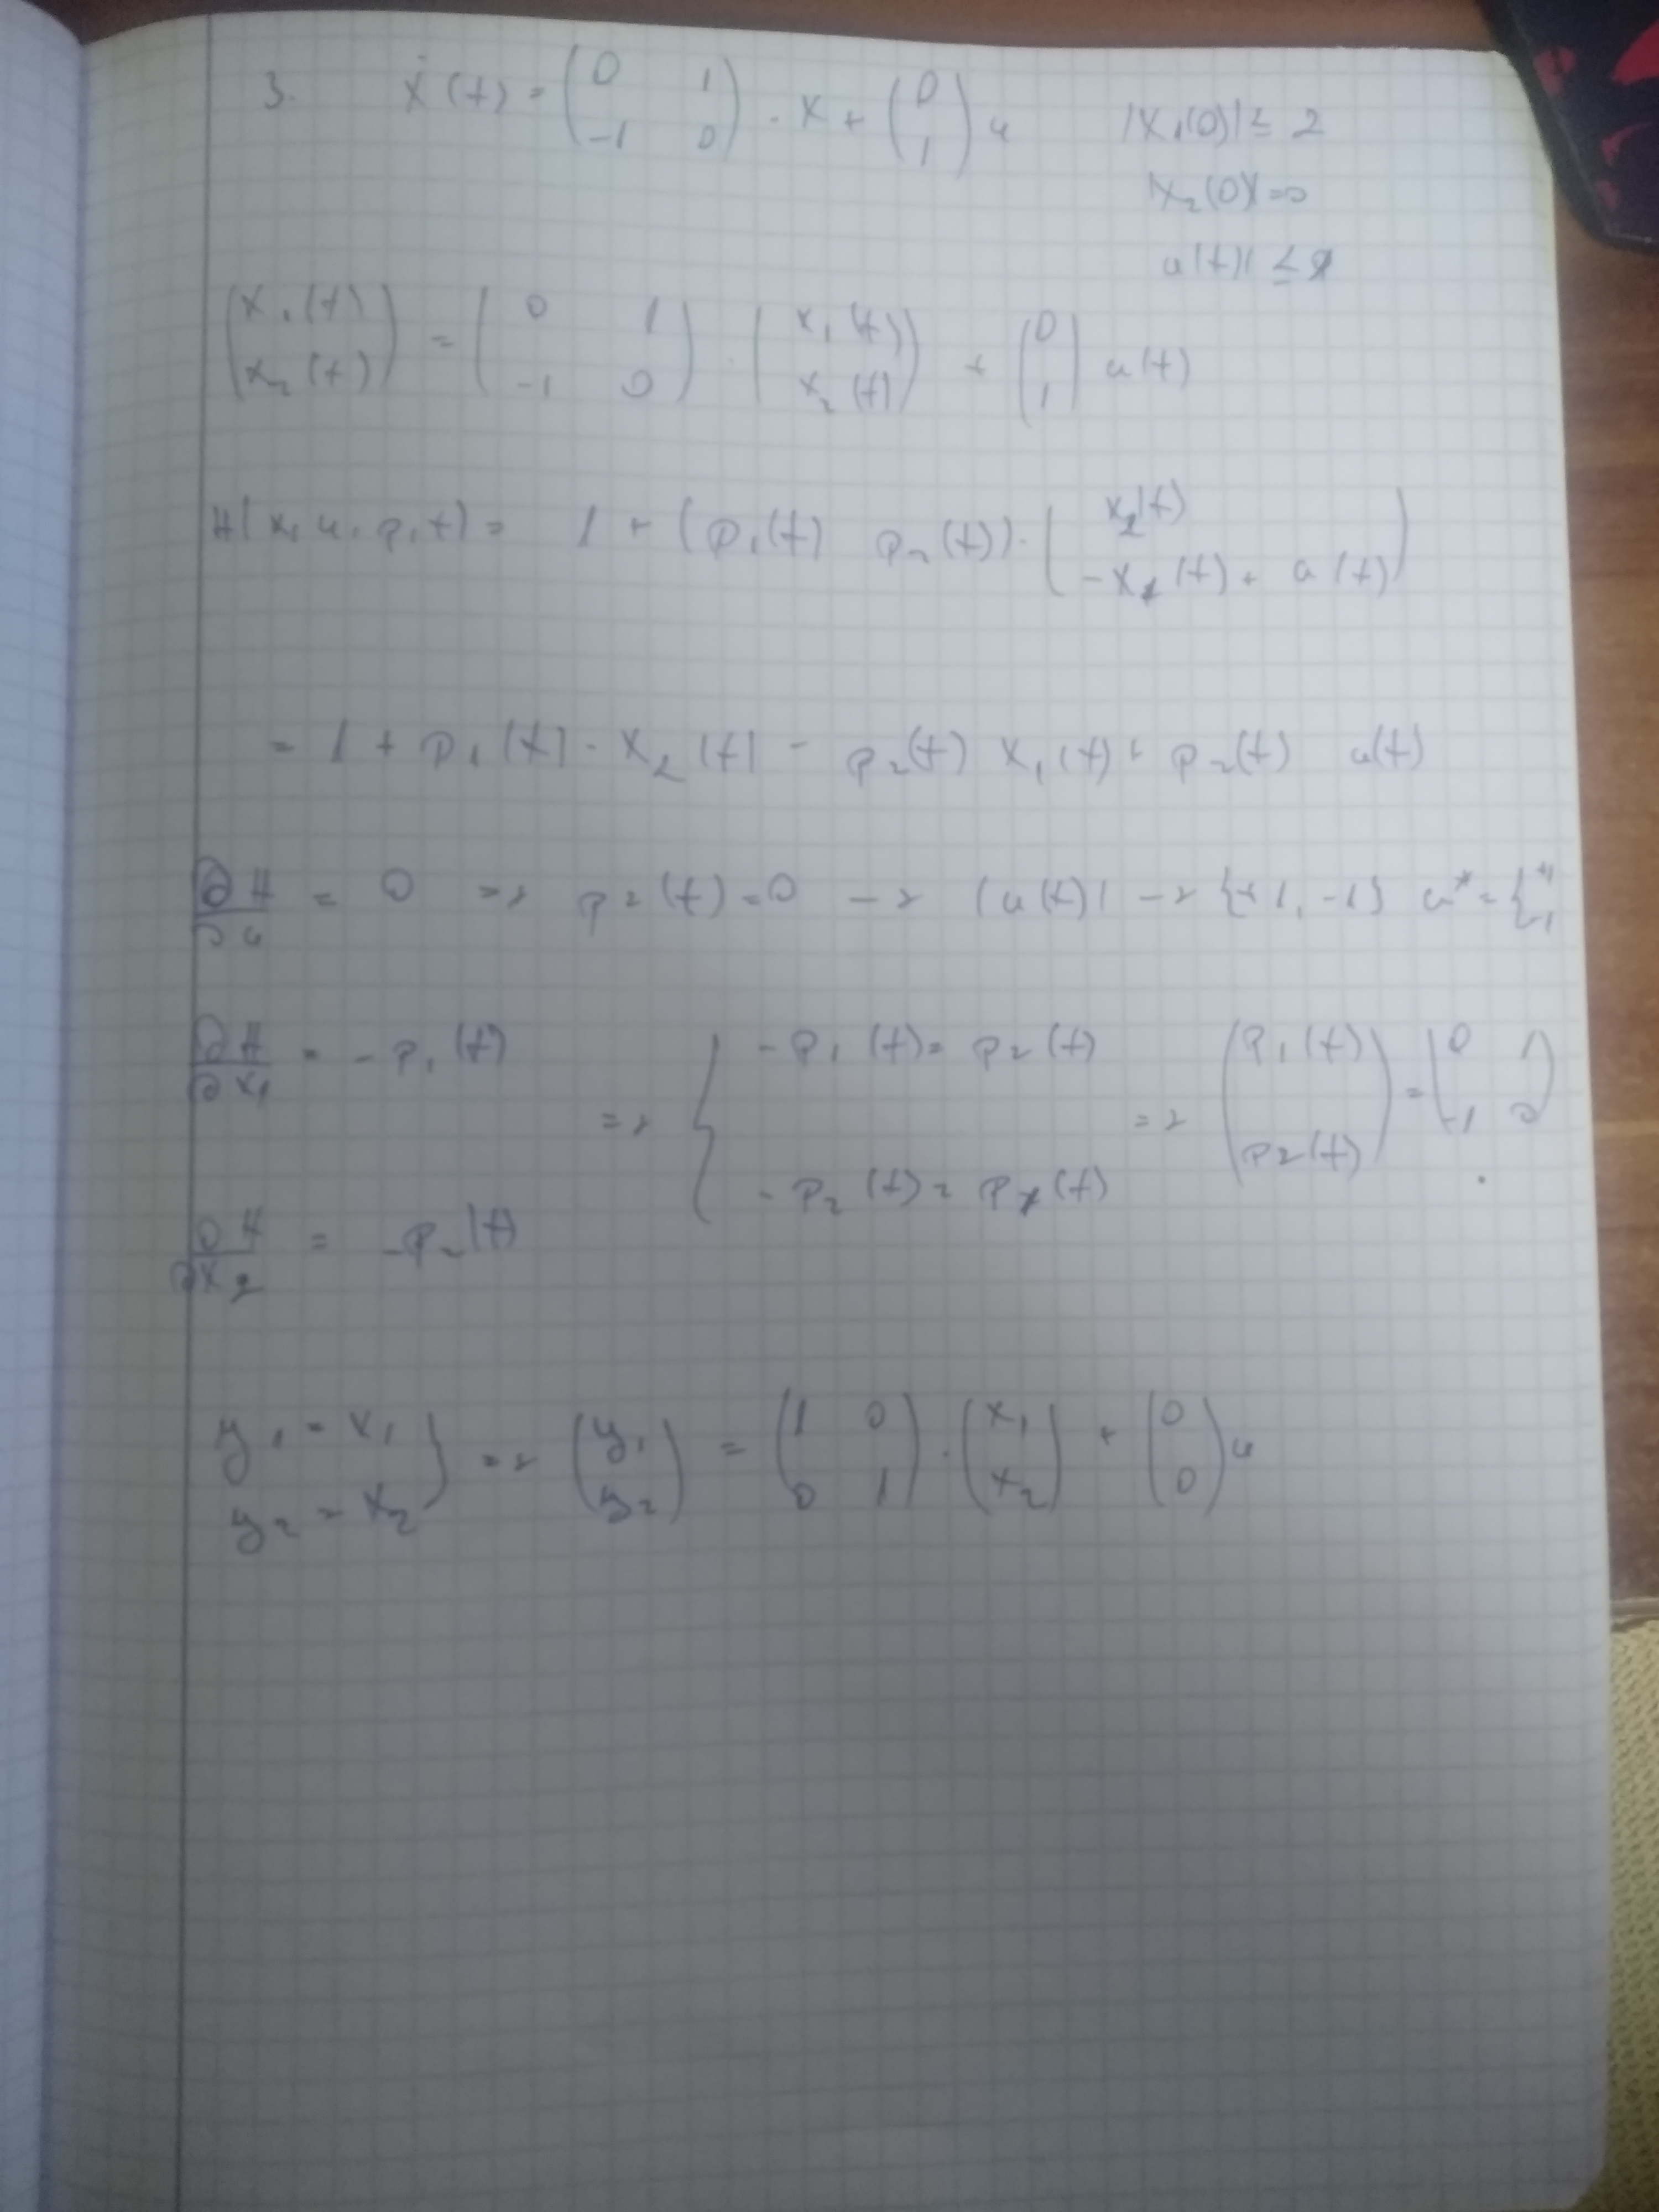 3. ẋ(t) = (0 1 / -1 0) · x + (0 / 1) u |x₁(0)| ≤ 2
x₂(0) = 0
u(t)| ≤ 1
(x₁(t) / x₂(t)) = (0 1 / -1 0) · (x₁(t) / x₂(t)) + (0 / 1) u(t)
H(x, u, p, t) = 1 + (p₁(t) p₂(t)) · (x₂(t) / -x₁(t) + u(t))
= 1 + p₁(t) · x₂(t) - p₂(t) x₁(t) + p₂(t) u(t)
∂H/∂u = 0 => p₂(t) = 0 -> |u(t)| -> {+1, -1} u* = {
∂H/∂x₁ = -p₁(t) => { -p₁(t) = p₂(t) => (p₁(t) / p₂(t)) = (0 1 / -1 0)
-p₂(t) = p₁(t)
∂H/∂x₂ = -p₂(t)
y₁ = x₁ } => (y₁ / y₂) = (1 0 / 0 1) · (x₁ / x₂) + (0 / 0) u
y₂ = x₂